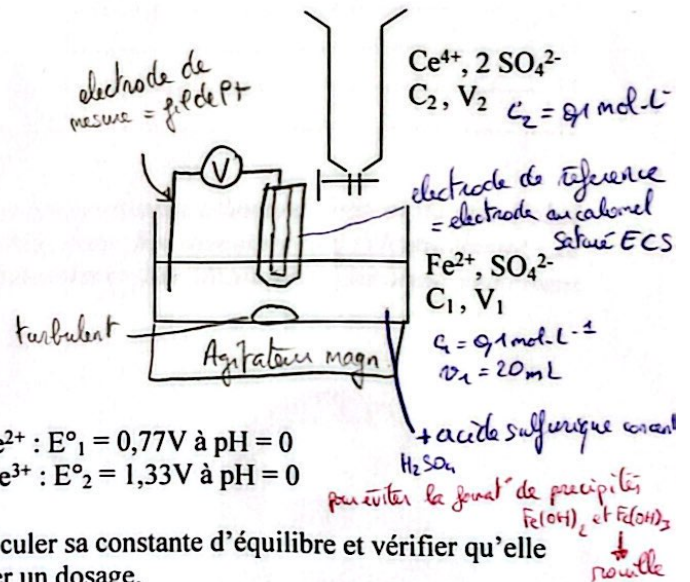 electrode de
mesure = fil de Pt
V
Ce⁴⁺, 2 SO₄²⁻
C₂, V₂
C₂ = 0,1 mol.L⁻
electrode de référence
= electrode au calomel
Saturé ECS
Fe²⁺, SO₄²⁻
C₁, V₁
C₁ = 0,1 mol.L⁻¹
v₁ = 20 mL
turbulent
Agitateur magn.
+ acide sulfurique concent
H₂SO₄
e²⁺ : E°₁ = 0,77V à pH = 0
e³⁺ : E°₂ = 1,33V à pH = 0
pour éviter la format° de précipités
Fe(OH)₂ et Fe(OH)₃
rouille
culer sa constante d’équilibre et vérifier qu’elle
er un dosage.